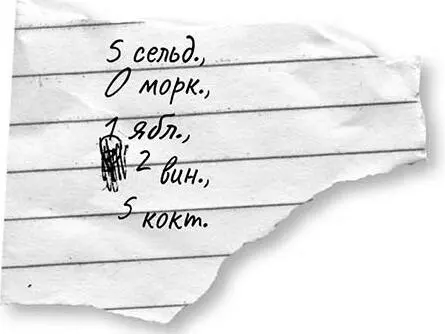 5 сельд.,
0 морк.,
1 ябл.,
2 вин.,
5 кокт.